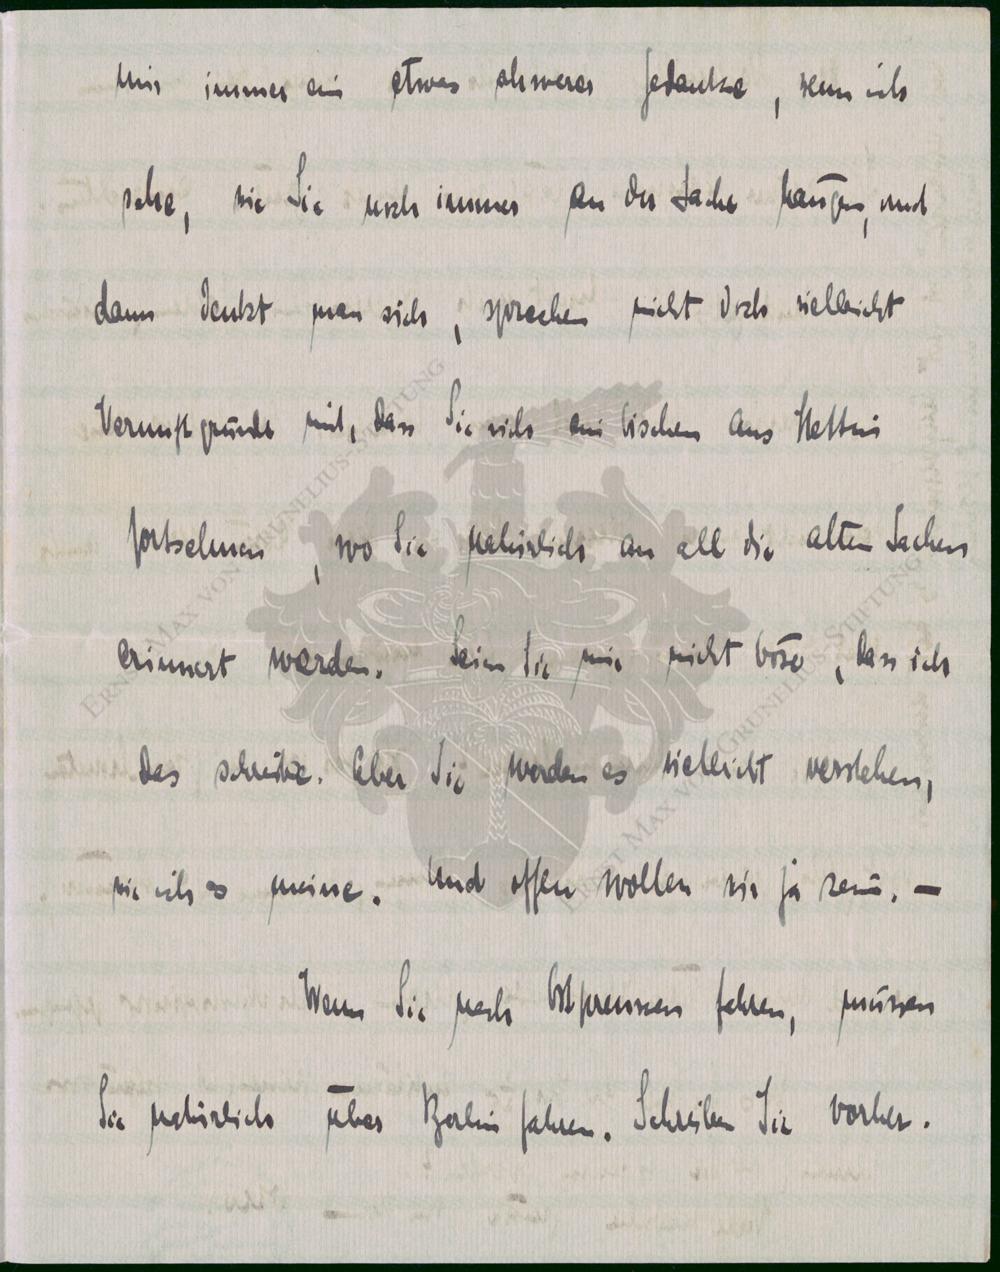 mir immer ein etwas schwerer Gedanke, wenn ich
sehe, wie Sie noch immer an der Sache hängen, und
dann denkt man sich, sprechen nicht doch vielleicht
Vernunftgründe mit, dass Sie sich ein bischen aus Stettin
fortsehnen, wo Sie natürlich an all die alten Sachen
erinnert werden. Seien Sie mir nicht böse, dass ich
das schreibe. Aber Sie werden es vielleicht verstehen,
wie ich es meine. Und offen wollen wir ja sein. —
Wenn Sie nach Ostpreussen fahren, müssen
Sie natürlich über Berlin fahren. Schreiben Sie vorher.
ERNST MAX VON GRUNELIUS-STIFTUNG
ERNST MAX VON GRUNELIUS-STIFTUNG